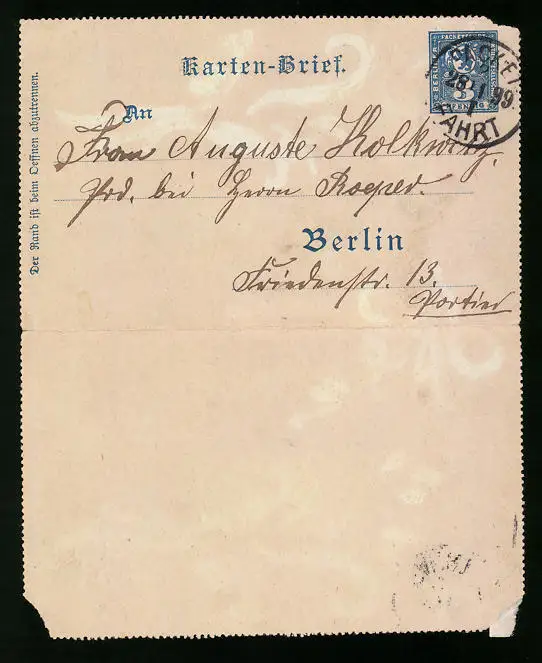 Karten-Brief.
BERLINER PACKETFAHRT
3
PFENNIG
28.1.99
FAHRT
An
Frau Auguste Kolkwitz,
Adr. bei Herrn Roeper.
Berlin
Friedenstr. 13.
Portier
Der Rand ist beim Oeffnen abzutrennen.